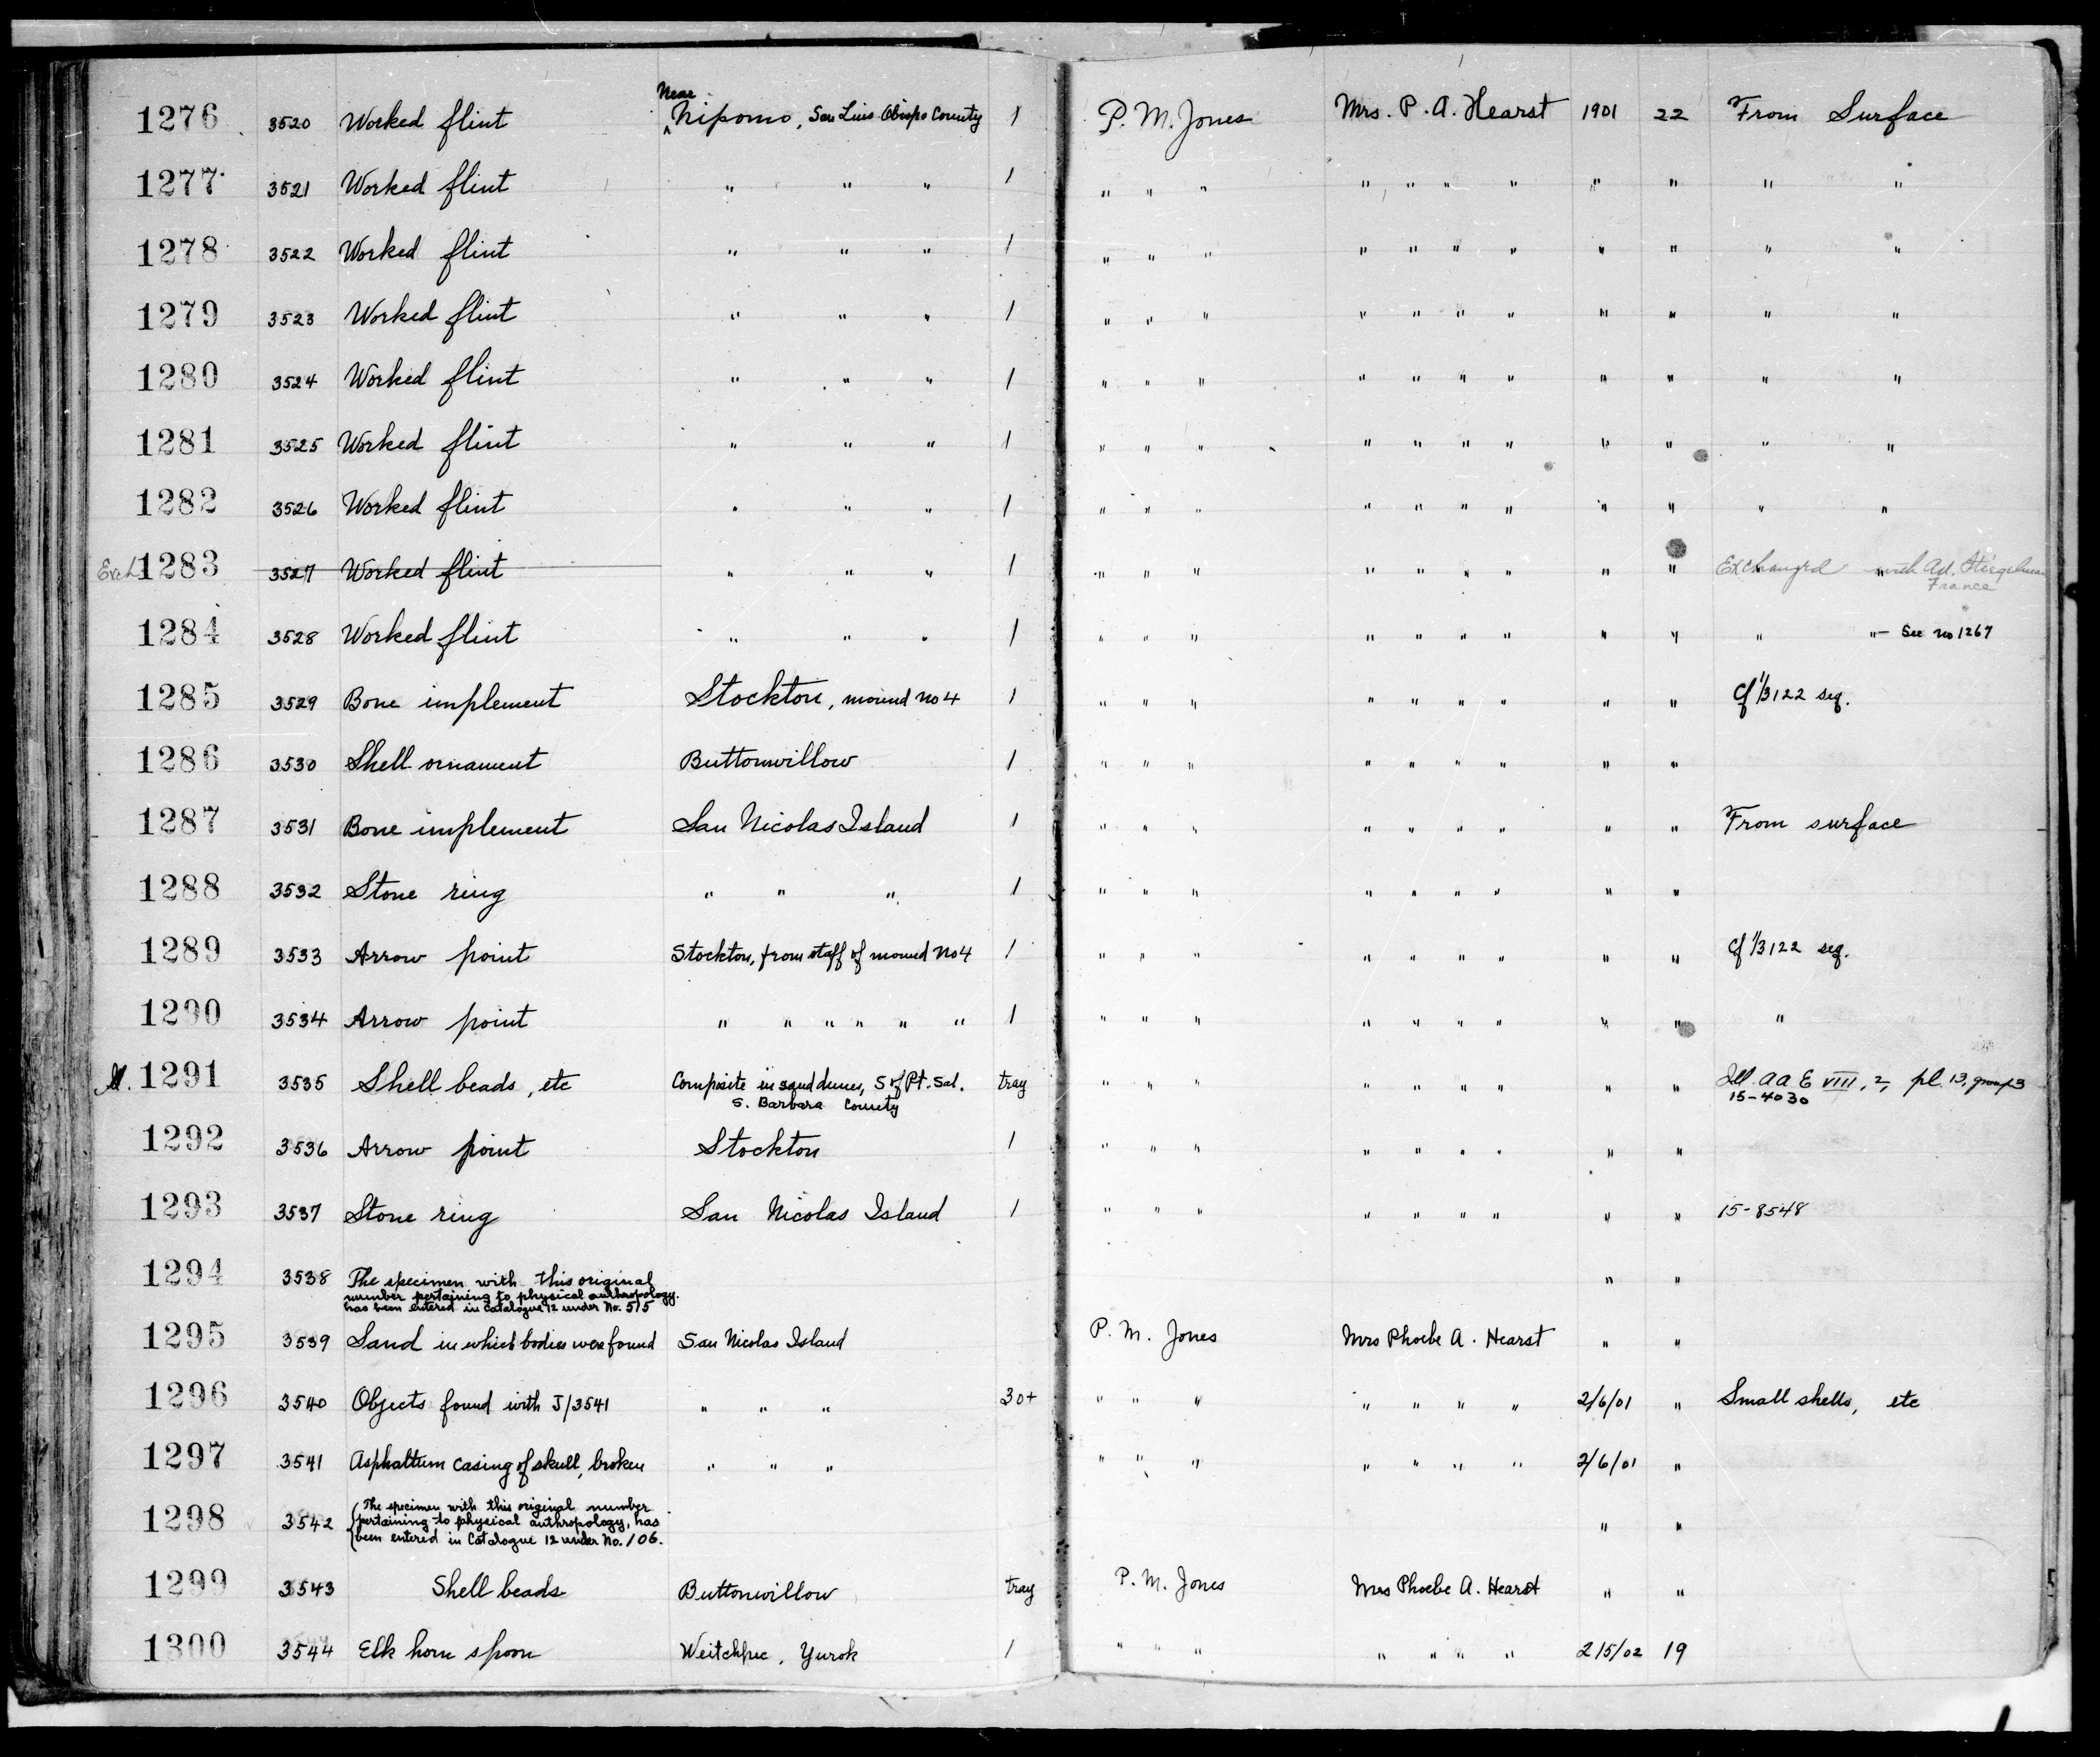 1276 3520 Worked flint Near Nipomo, San Luis Obispo County 1 P. M. Jones Mrs. P. A. Hearst 1901 22 From Surface
1277 3521 Worked flint " " " 1 " " " " " " " " " " "
1278 3522 Worked flint " " " 1 " " " " " " " " " " "
1279 3523 Worked flint " " " 1 " " " " " " " " " " "
1280 3524 Worked flint " " " 1 " " " " " " " " " " "
1281 3525 Worked flint " " " 1 " " " " " " " " " " "
1282 3526 Worked flint " " " 1 " " " " " " " " " " "
Exch 1283 3527 Worked flint " " " 1 " " " " " " " " " Exchanged with Ad.
France
1284 3528 Worked flint " " " 1 " " " " " " " " " " " — See no 1267
1285 3529 Bone implement Stockton, mound no 4 1 " " " " " " " " " Cf 1/3122 seq.
1286 3530 Shell ornament Buttonwillow 1 " " " " " " " " "
1287 3531 Bone implement San Nicolas Island 1 " " " " " " " " " From surface
1288 3532 Stone ring " " " 1 " " " " " " " " "
1289 3533 Arrow point Stockton, from staff of mound no 4 1 " " " " " " " " " Cf 1/3122 seq.
1290 3534 Arrow point " " " " " " 1 " " " " " " " " " "
Ill. 1291 3535 Shell beads, etc Composite in sand dunes, S of Pt. Sal. tray " " " " " " " " " Ill. A A E VIII, 2, pl. 13, group 3
S. Barbara County 15-4030
1292 3536 Arrow point Stockton 1 " " " " " " " " "
1293 3537 Stone ring San Nicolas Island 1 " " " " " " " " " 15-8548
1294 3538 The specimen with this original " "
number pertaining to physical anthropology.
has been entered in Catalogue 12 under No. 515
1295 3539 Sand in which bodies were found San Nicolas Island P. M. Jones Mrs Phoebe A. Hearst " "
1296 3540 Objects found with J/3541 " " " 30+ " " " " " " " 2/6/01 " Small shells, etc
1297 3541 Asphaltum casing of skull, broken " " " " " " " " " " 2/6/01 "
1298 3542 The specimen with this original number " "
pertaining to physical anthropology, has
been entered in Catalogue 12 under No. 106.
1299 3543 Shell beads Buttonwillow tray P. M. Jones Mrs Phoebe A. Hearst " "
1300 3544 Elk horn spoon Weitchpec, Yurok 1 " " " " " " " 2/5/02 19